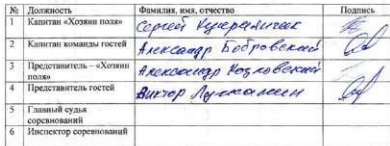 № Должность Фамилия, имя, отчество Подпись
1 Капитан «Хозяин поля» Сергей
2 Капитан команды гостей Александр Бобровский
3 Представитель – «Хозяин поля» Александр Козловский
4 Представитель гостей Виктор
5 Главный судья соревнований
6 Инспектор соревнований